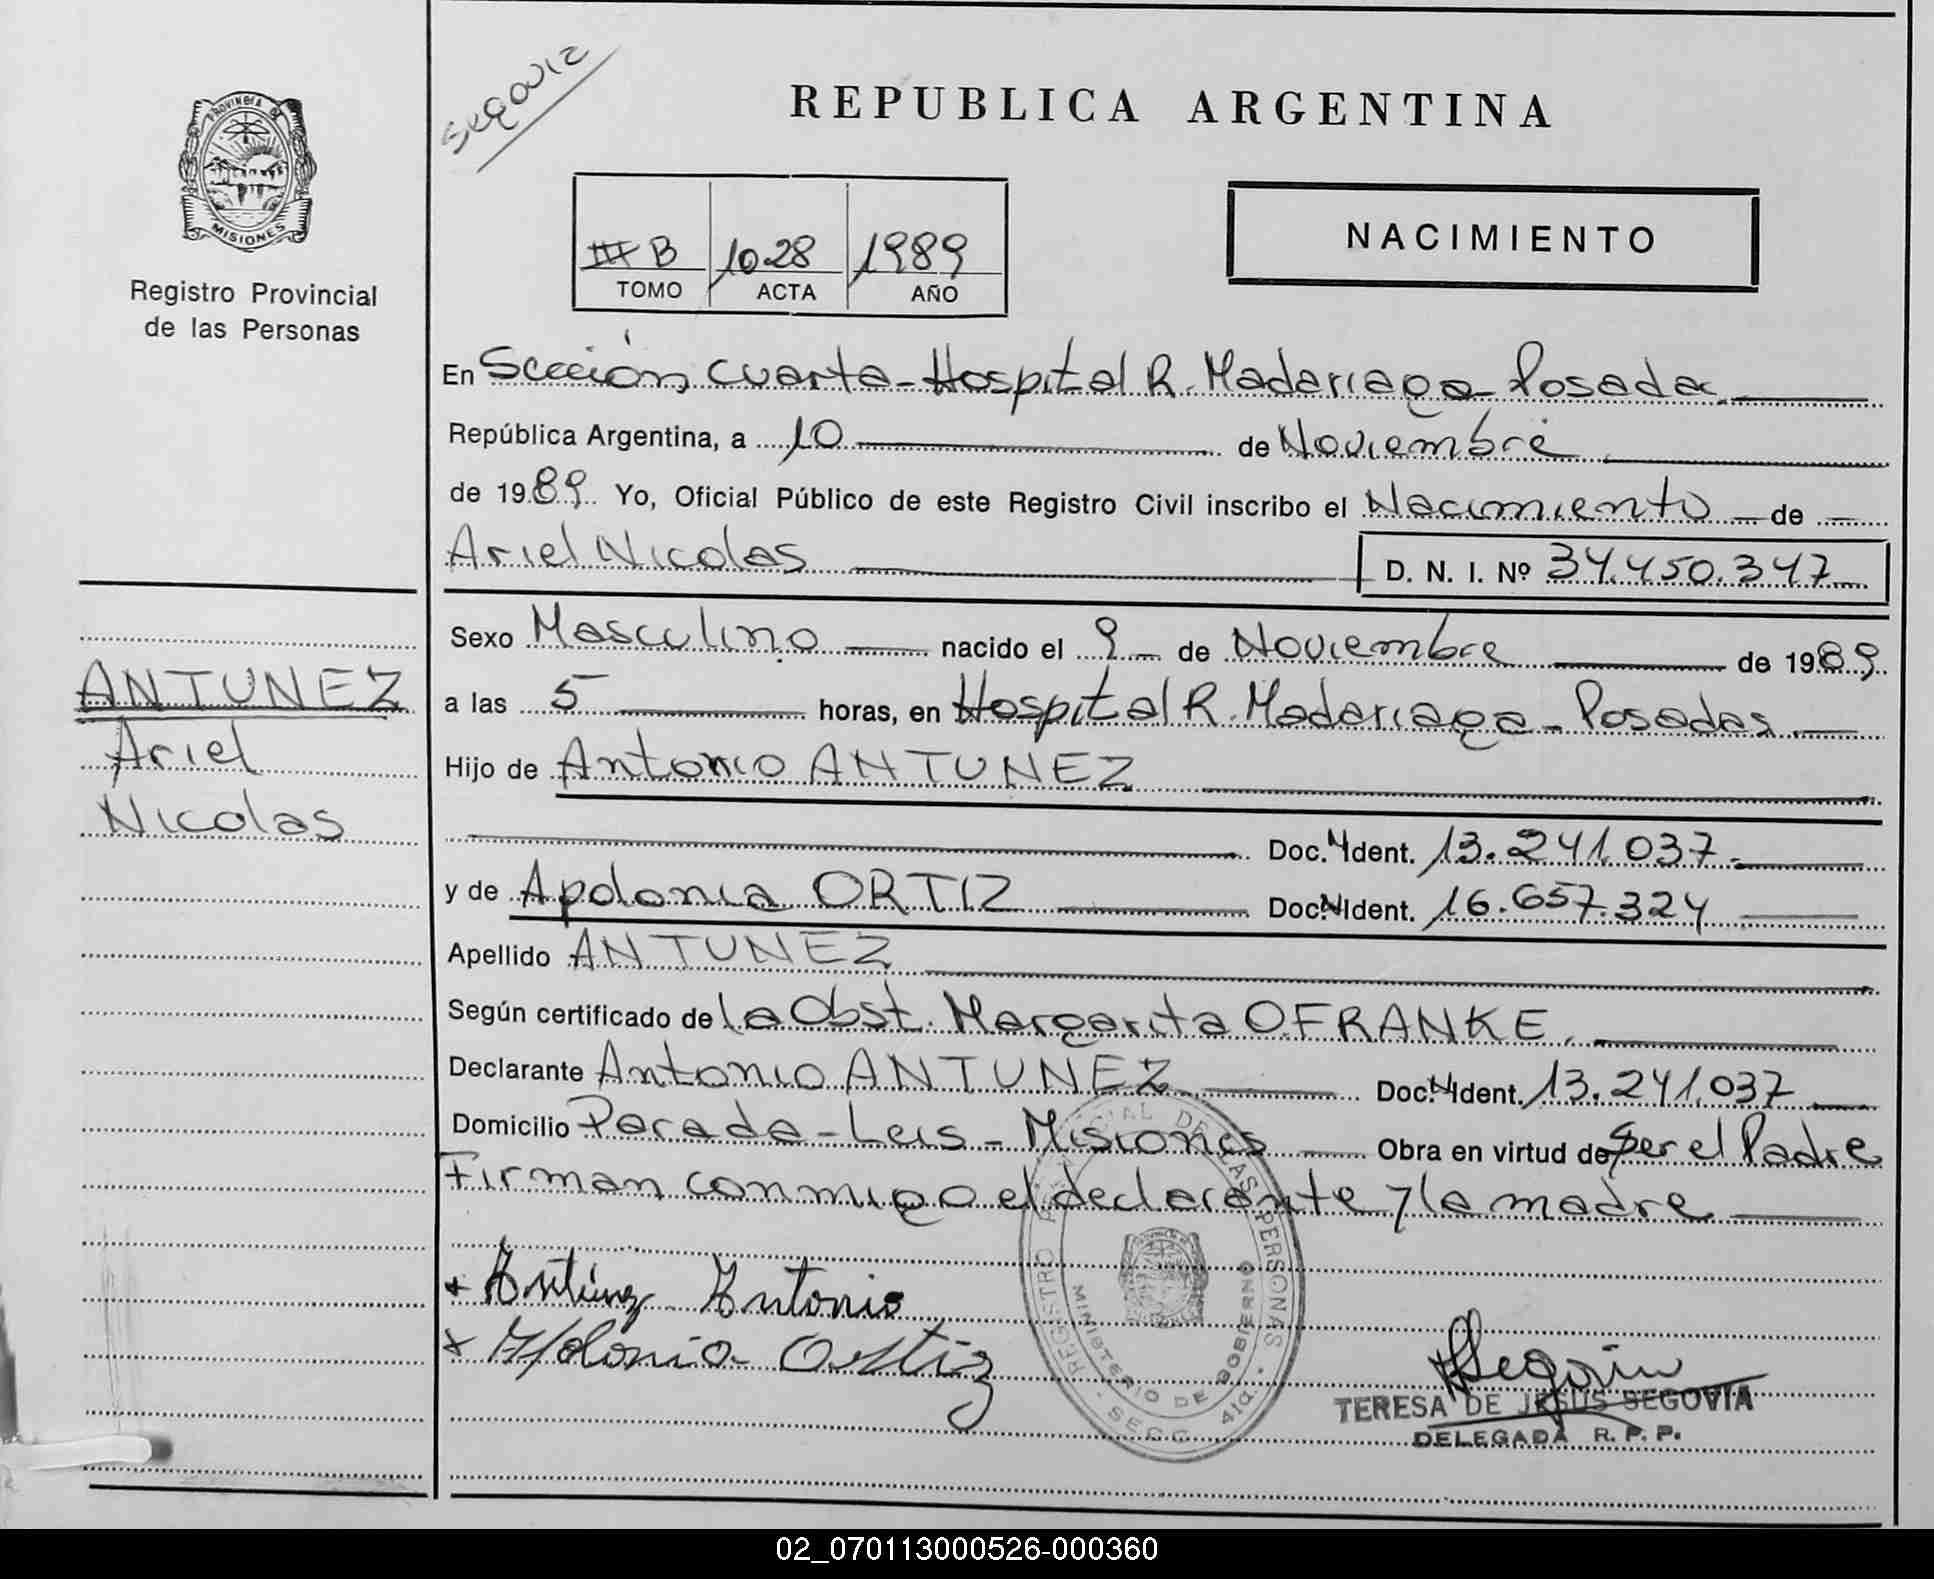 segoviz
REPUBLICA ARGENTINA
PROVINCIA DE
MISIONES
Registro Provincial
de las Personas
III B 1028 1989
TOMO ACTA AÑO
NACIMIENTO
En Sección Cuarta - Hospital R. Madariaga - Posadas
República Argentina, a 10 de Noviembre
de 1989 Yo, Oficial Público de este Registro Civil inscribo el Nacimiento de
Ariel Nicolas D. N. I. Nº 34.450.347
ANTUNEZ
Ariel
Nicolas
Sexo Masculino nacido el 9 de Noviembre de 1989
a las 5 horas, en Hospital R. Madariaga - Posadas
Hijo de Antonio ANTUNEZ
Doc. N Ident. 13.241.037
y de Apolonia ORTIZ Doc. N Ident. 16.657.324
Apellido ANTUNEZ
Según certificado de la Obst. Margarita O. FRANKE
Declarante Antonio ANTUNEZ Doc. N Ident. 13.241.037
Domicilio Parada - Leis - Misiones Obra en virtud de Ser el Padre
Firman conmigo el declarante y la madre
+ Antúnez Antonio
+ Apolonia Ortiz
REGISTRO PROVINCIAL DE LAS PERSONAS
MINISTERIO DE GOBIERNO
SECC. 4ta.
TERESA DE JESUS SEGOVIA
DELEGADA R. P. P.
02_070113000526-000360